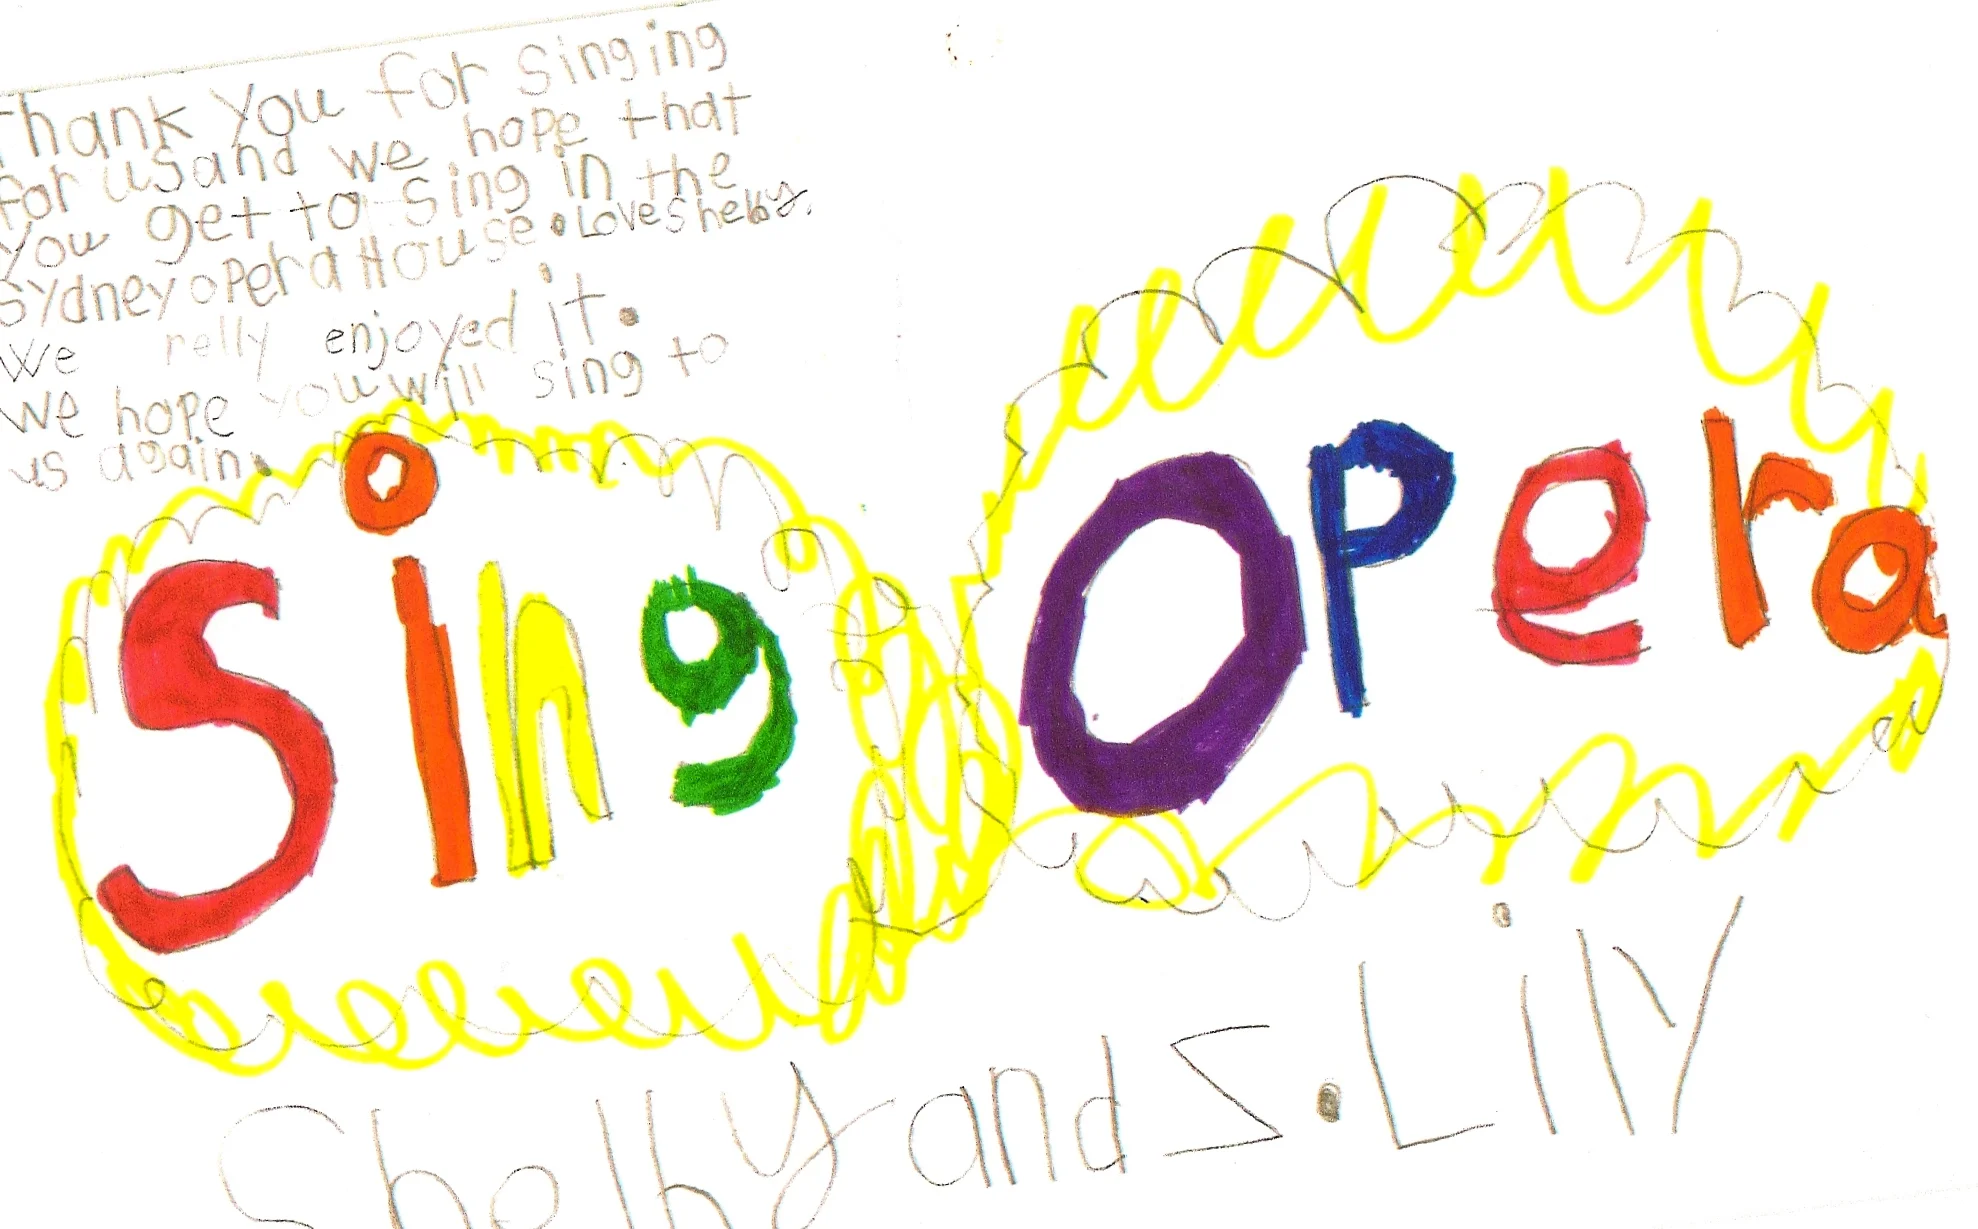 Thank You for singing
for us and we hope that
You get to sing in the
Sydney opera House. Love Shelby.
We relly enjoyed it.
We hope you will sing to
us again.
Sing Opera
Shelby and Z. Lily